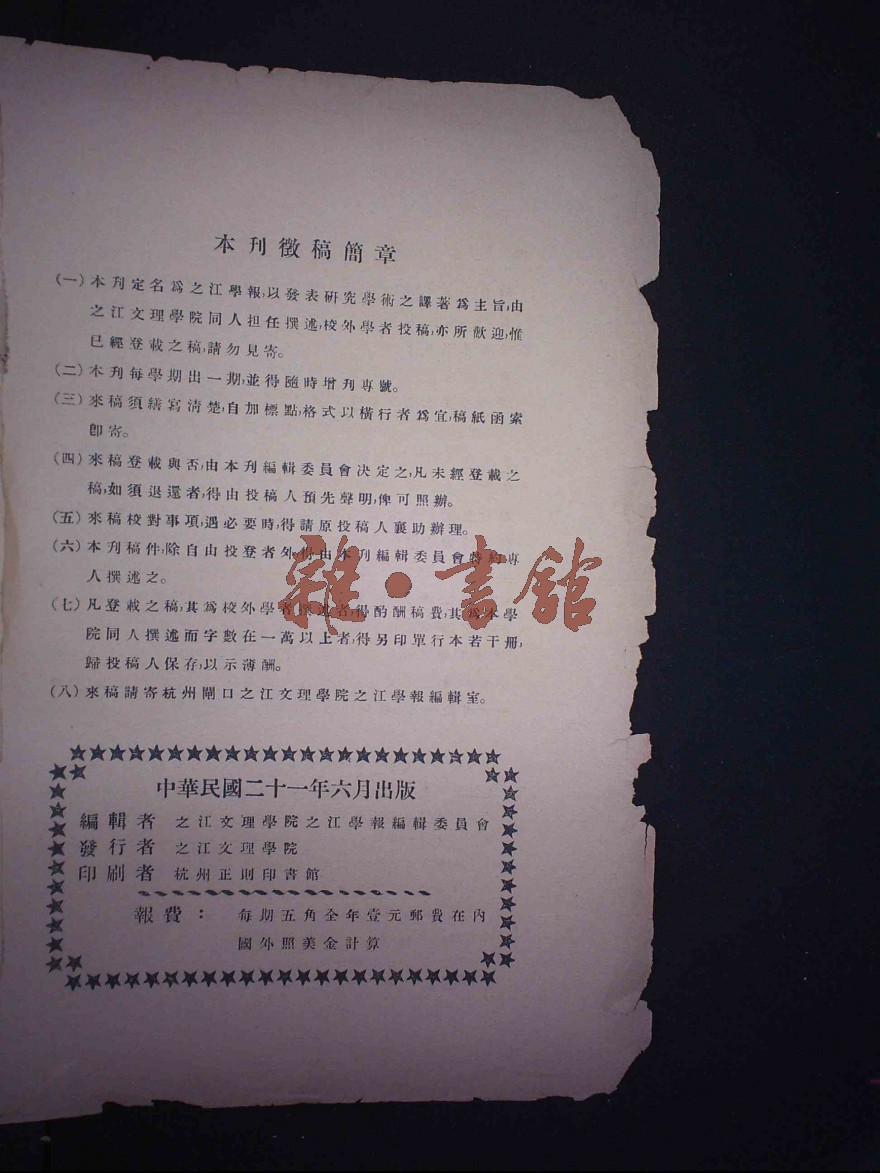 本刊徵稿簡章
(一)本刊定名爲之江學報,以發表研究學術之譯著爲主旨,由
之江文理學院同人担任撰述,校外學者投稿,亦所歡迎,惟
已經登載之稿,請勿見寄。
(二)本刊每學期出一期,並得隨時增刊專號。
(三)來稿須繕寫清楚,自加標點,格式以橫行者爲宜,稿紙函索
卽寄。
(四)來稿登載與否,由本刊編輯委員會決定之,凡未經登載之
稿,如須退還者,得由投稿人預先聲明,俾可照辦。
(五)來稿校對事項,遇必要時,得請原投稿人襄助辦理。
(六)本刊稿件,除自由投登者外,得由本刊編輯委員會特約專
人撰述之。
(七)凡登載之稿,其爲校外學者撰述者,得酌酬稿費,其爲本學
院同人撰述而字數在一萬以上者,得另印單行本若干册,
歸投稿人保存,以示薄酬。
(八)來稿請寄杭州閘口之江文理學院之江學報編輯室。
雜·書館
中華民國二十一年六月出版
編輯者 之江文理學院之江學報編輯委員會
發行者 之江文理學院
印刷者 杭州正則印書館
報費: 每期五角全年壹元郵費在內
國外照美金計算